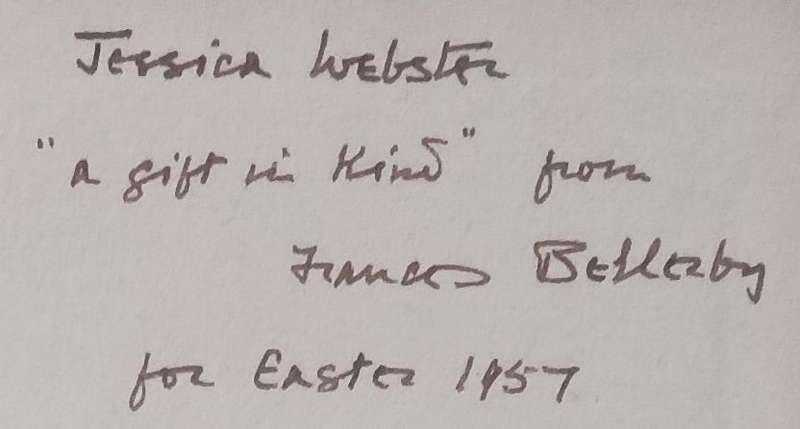 Jessica Webster
"a gift in kind" from
Frances Bellerby
for Easter 1957